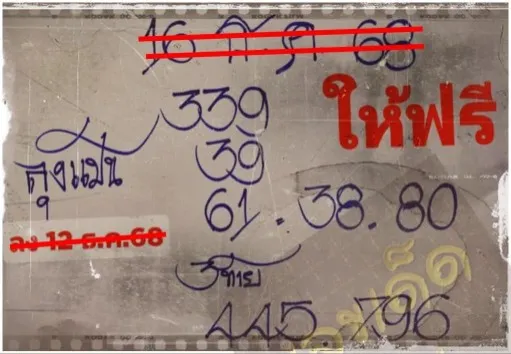 16 ธ.ค 68
339
ให้ฟรี
39
ลุงแม้น
61. 38. 80
ลง 12 ธ.ค.68
3 ท้าย
445. 796